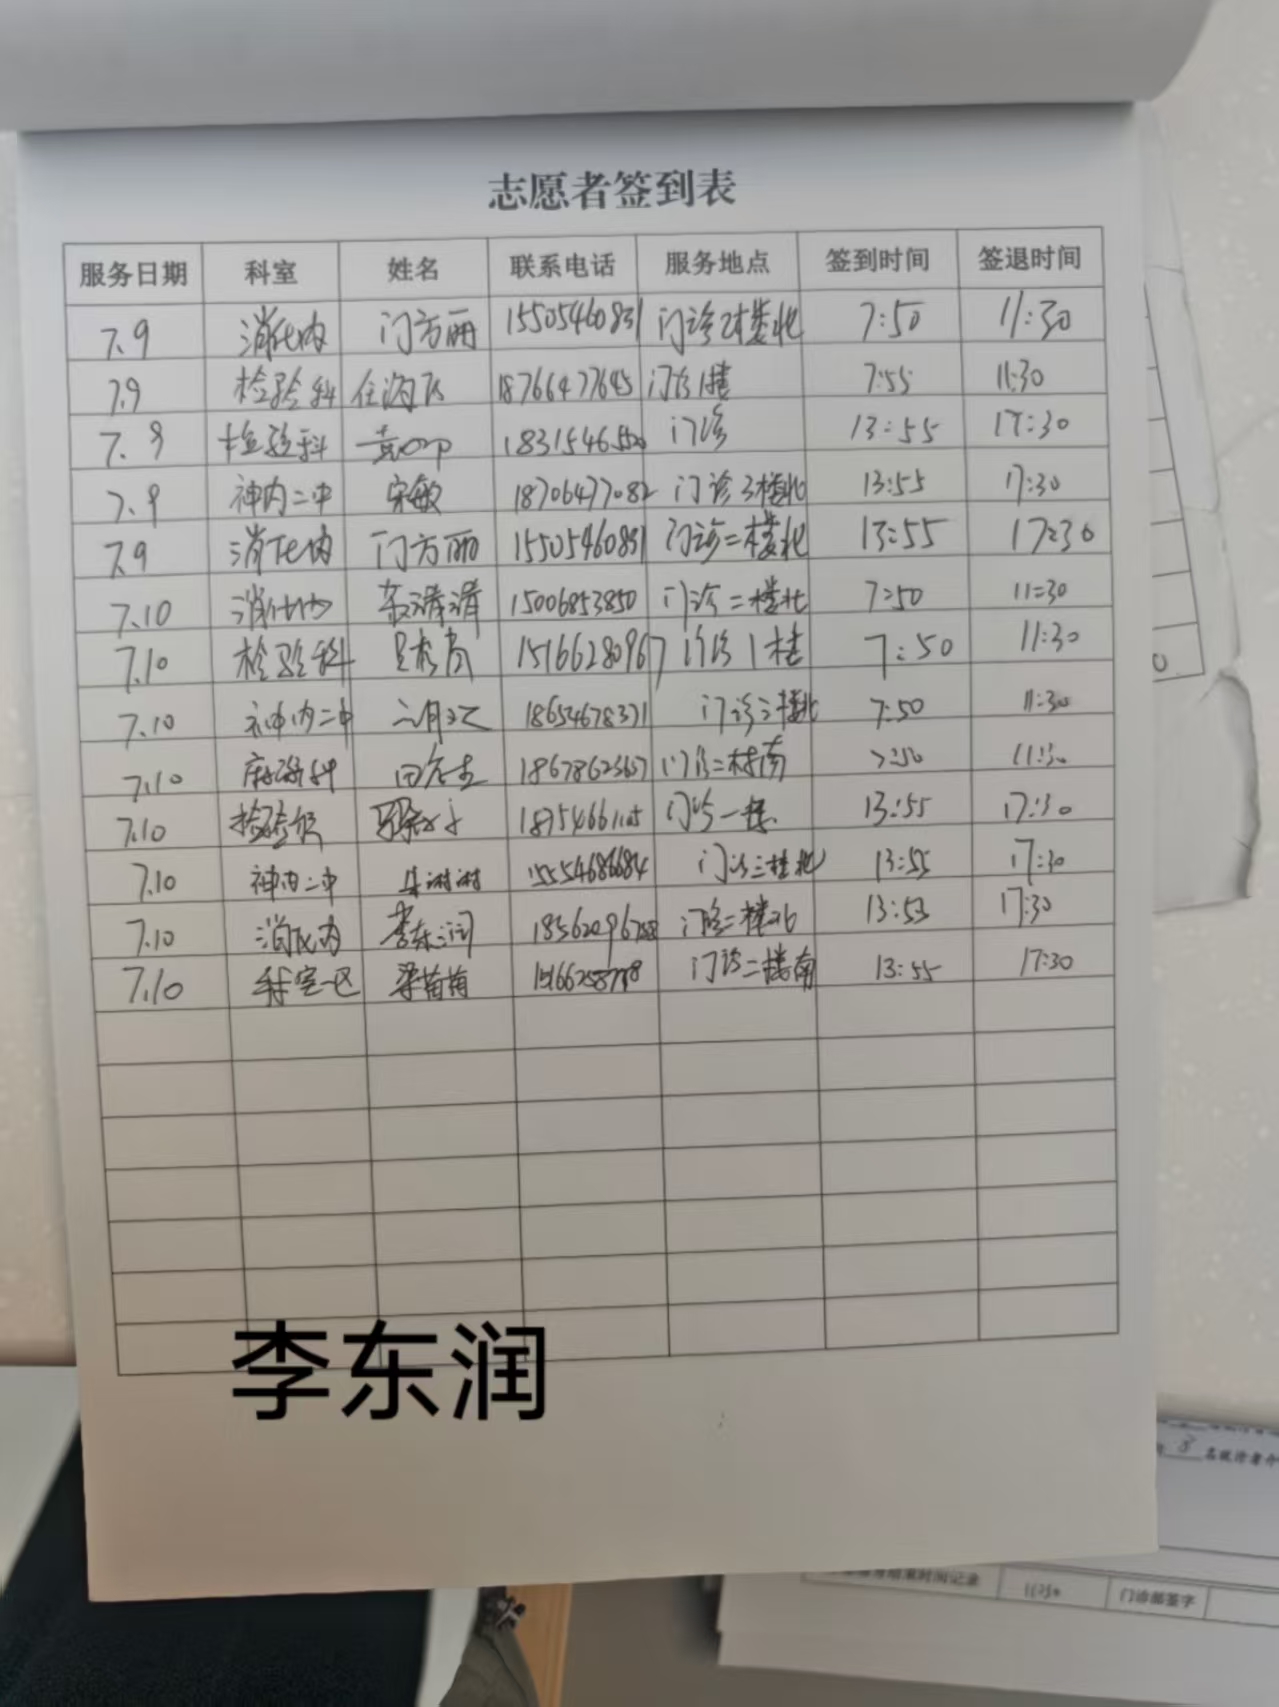 志愿者签到表
服务日期 科室 姓名 联系电话 服务地点 签到时间 签退时间
7.9 消化内 门方丽 15505460831 门诊2楼北 7:50 11:30
7.9 检验科 18766477645 门诊1楼 7:55 11:30
7.9 检验科 门诊 13:55 17:30
7.9 神内二中 宋敏 18706477082 门诊3楼北 13:55 17:30
7.9 消化内 门方丽 15505460831 门诊二楼北 13:55 17:30
7.10 消化内 清清 15006853850 门诊二楼北 7:50 11:30
7.10 检验科 15166280967 门诊1楼 7:50 11:30
7.10 神内二中 18654678371 门诊三楼北 7:50 11:30
7.10 门诊二楼南 7:50 11:30
7.10 检验科 门诊一楼 13:55 17:30
7.10 神内二中 15554686684 门诊三楼北 13:55 17:30
7.10 消化内 李东润 门诊二楼北 13:53 17:30
7.10 梁苗苗 门诊二楼南 13:55 17:30
李东润
8 名就诊者介
结束时间记录 门诊部签字